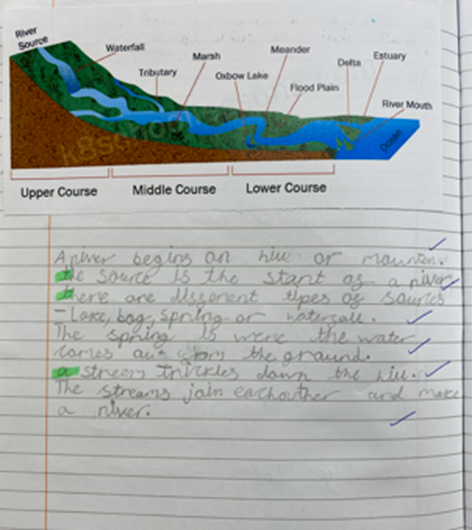 River
Source
Waterfall
Tributary
Marsh
Oxbow Lake
Meander
Flood Plain
Delta
Estuary
River Mouth
Ocean
Upper Course
Middle Course
Lower Course
A river begins on hill or mounten.
the source is the start of a river
there are dissorent types of sources
- Lake, bog, spring or waterfall.
The spring is were the water
comes out from the ground.
a stream trickles down the hill.
The streams join eachouther and make
a river.